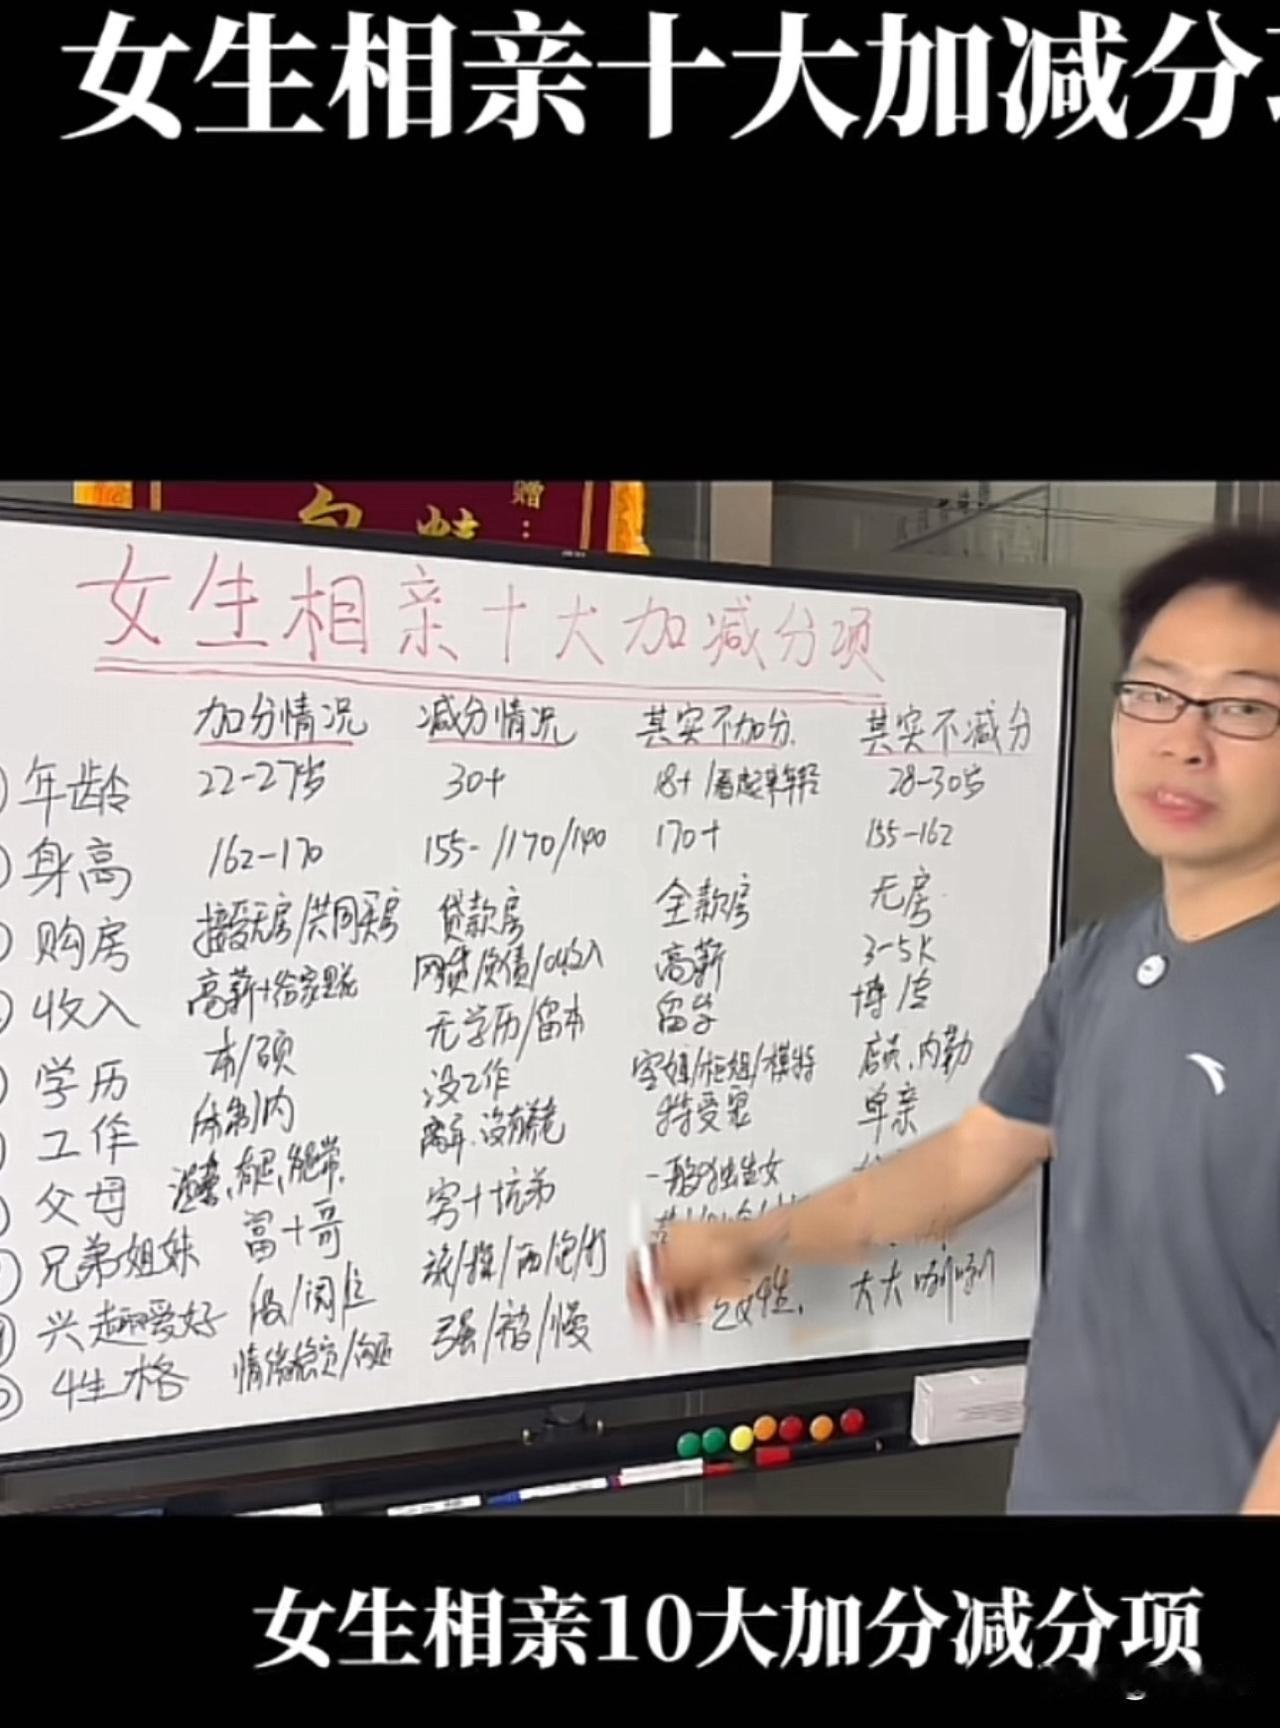 女生相亲十大加减分
赠:
女生相亲十大加减分项
加分情况 减分情况 其实不加分 其实不减分
年龄 22-27岁 30+ 18+/看起来年轻 28-30岁
身高 162-170 155-/170/140 170+ 155-162
购房 接受无房/共同买房 贷款房 全款房 无房
收入 高薪+给家里花 网贷/负债/0收入 高薪 3-5K
学历 本/硕 无学历/留本 留学 博/专
工作 体制内 没工作 空姐/柜姐/模特 店员、内勤
父母 离异、没有养老 特受宠 单亲
兄弟姐妹 富+哥 穷+坑弟 一般独生女
兴趣爱好
性格 情绪稳定 强 大大咧咧
女生相亲10大加分减分项